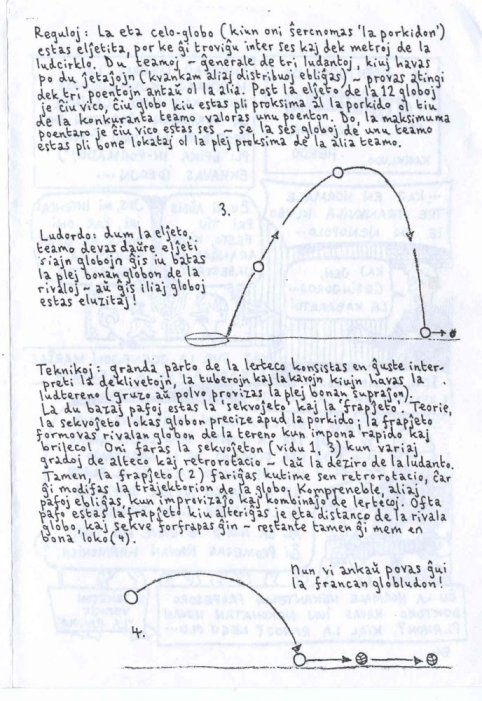 Reguloj: La eta celo-globo (kiun oni ŝercnomas 'la porkidon')
estas elĵetita, por ke ĝi troviĝu inter ses kaj dek metroj de la
ludcirklo. Du teamoj – ĝenerale de tri ludantoj, kiuj havas
po du ĵetaĵojn (kvankam aliaj distribuoj ebliĝas) – provas atingi
dek tri poentojn antaŭ ol la alia. Post la elĵeto de la 12 globoj
je ĉiu vico, ĉiu globo kiu estas pli proksima al la porkido ol tiu
de la konkuranta teamo valoras unu poenton. Do, la maksimuma
poentaro je ĉiu vico estas ses – se la ses globoj de unu teamo
estas pli bone lokataj ol la plej proksima de la alia teamo.
3.
Ludordo: dum la elĵeto,
teamo devas daŭre elĵeti
siajn globojn ĝis iu batas
la plej bonan globon de la
rivaloj – aŭ ĝis iliaj globoj
estas eluzitaj!
Teknikoj: granda parto de la lerteco konsistas en ĝuste inter-
preti la deklivetojn, la tuberojn kaj la kavojn kiujn havas la
ludtereno (gruzo aŭ polvo provizas la plej bonan supraĵon).
La du bazaj pafoj estas la 'sekvoĵeto' kaj la 'frapĵeto'. Teorie,
la sekvoĵeto lokas globon precize apud la porkido; la frapĵeto
formovas rivalan globon de la tereno kun impona rapido kaj
brileco! Oni faras la sekvoĵeton (vidu 1, 3) kun variaj
gradoj de alteco kaj retrorotacio – laŭ la deziro de la ludanto.
Tamen, la frapĵeto (2) fariĝas kutime sen retrorotacio, ĉar
ĝi modifas la trajektorion de la globo. Kompreneble, aliaj
pafoj ebliĝas, kun improvizaĵo kaj kombinaĵo de lertecoj. Ofta
pafo estas la frapĵeto kiu alteriĝas je eta distanco de la rivala
globo, kaj sekve forfrapas ĝin – restante tamen ĝi mem en
bona 'loko (4).
Nun vi ankaŭ povas ĝui
la francan globludon!
4.